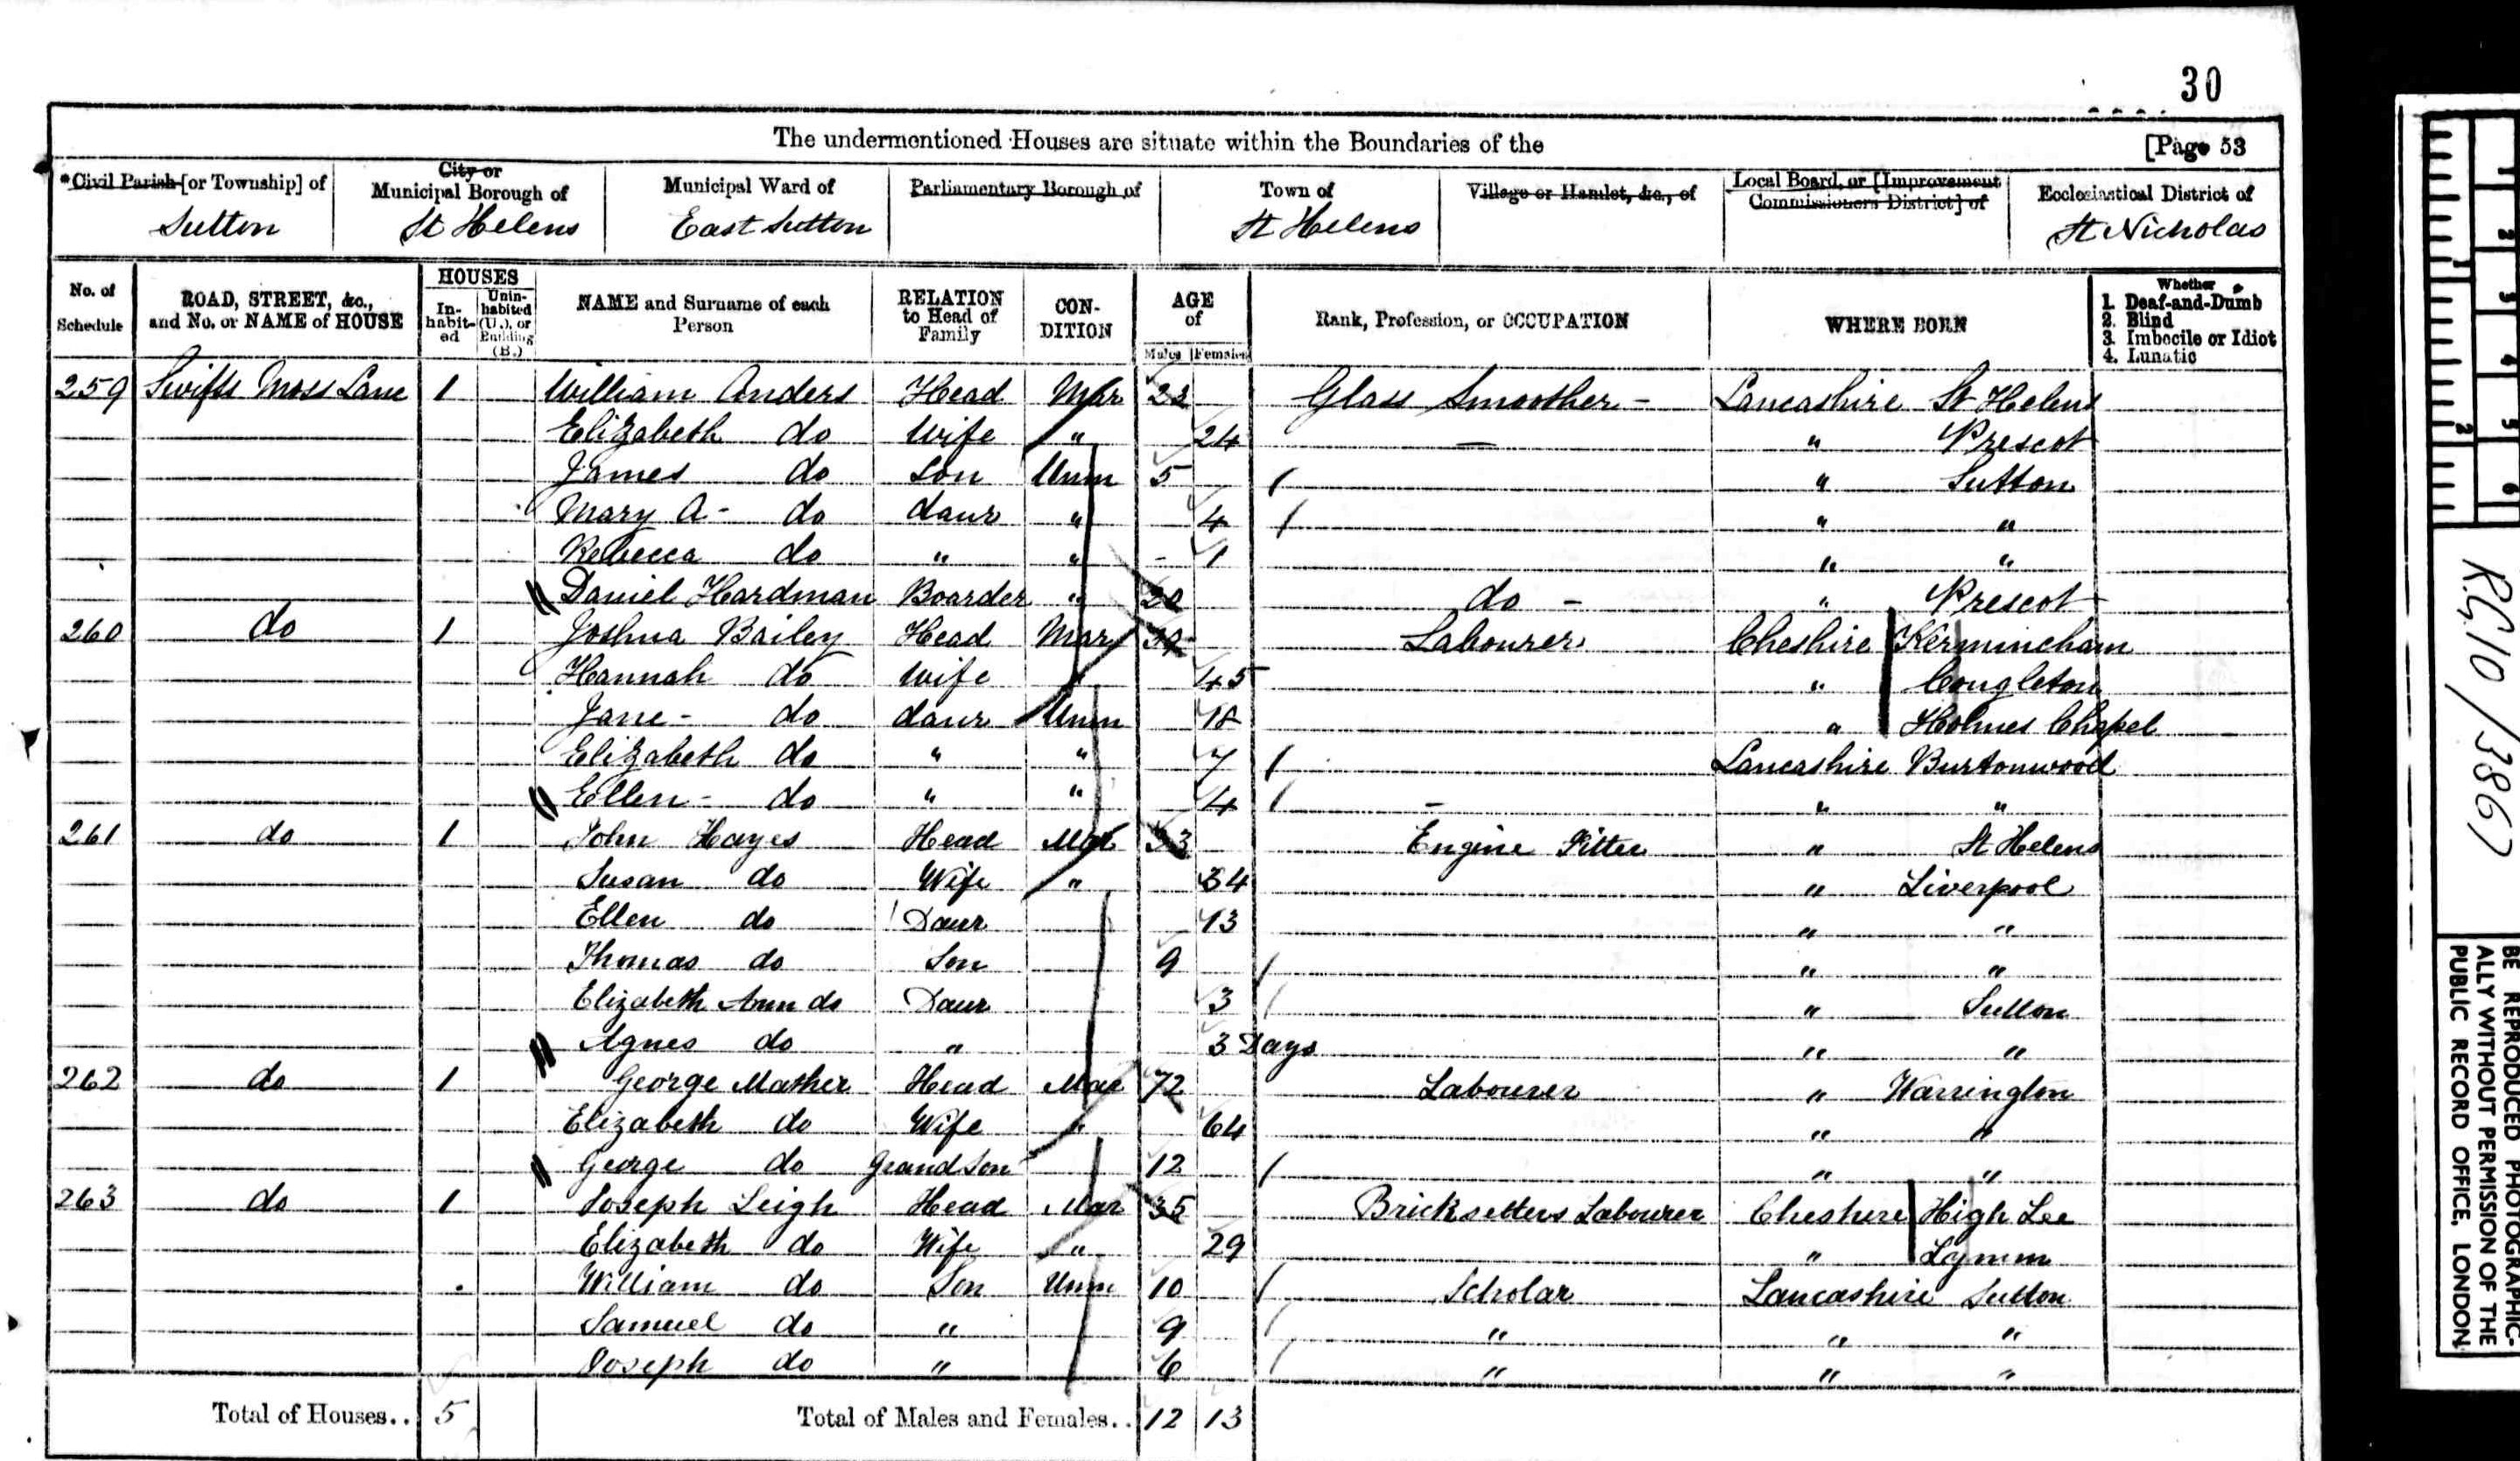 30
The undermentioned Houses are situate within the Boundaries of the [Page 53
*Civil Parish [or Township] of Sutton
City or Municipal Borough of St Helens
Municipal Ward of East Sutton
Parliamentary Borough of
Town of St Helens
Village or Hamlet, &c., of
Local Board, or [Improvement Commissioners District] of
Ecclesiastical District of St Nicholas
No. of Schedule
ROAD, STREET, &c., and No. or NAME of HOUSE
HOUSES
In-habit-ed
Unin-habited (U.), or Building (B.)
NAME and Surname of each Person
RELATION to Head of Family
CON-DITION
AGE of
Males Females
Rank, Profession, or OCCUPATION
WHERE BORN
Whether
1. Deaf-and-Dumb
2. Blind
3. Imbecile or Idiot
4. Lunatic
259 Swifts Moss Lane 1 William Anders Head Mar 23 Glass Smoother - Lancashire St Helens
Elizabeth do Wife " 24 — " Prescot
James do Son Unm 5 " Sutton
Mary A- do daur " 4 " "
Rebecca do " " - 1 " "
Daniel Hardman Boarder " 20 do - " Prescot
260 do 1 Joshua Bailey Head Mar Labourer Cheshire Kermincham
Hannah do Wife " 45 " Congleton
Jane - do daur Unm 18 " Holmes Chapel
Elizabeth do " " 7 Lancashire Burtonwood
Ellen - do " " 4 - " "
261 do 1 John Hayes Head Mar 33 Engine Fitter " St Helens
Susan do Wife " 34 " Liverpool
Ellen do Daur 13 " "
Thomas do Son 9 " "
Elizabeth Ann do Daur 3 " Sutton
Agnes do " 3 Days " "
262 do 1 George Mather Head Mar 72 Labourer " Warrington
Elizabeth do Wife " 64 " "
George do Grand Son 12 " "
263 do 1 Joseph Leigh Head Mar 35 Bricksetters Labourer Cheshire High Lee
Elizabeth do Wife " 29 " Lymm
William do Son Unm 10 Scholar Lancashire Sutton
Samuel do " 9 " " "
Joseph do " 6 " " "
Total of Houses.. 5 Total of Males and Females.. 12 13
RG 10/3867
BE REPRODUCED PHOTOGRAPHIC-
ALLY WITHOUT PERMISSION OF THE
PUBLIC RECORD OFFICE, LONDON